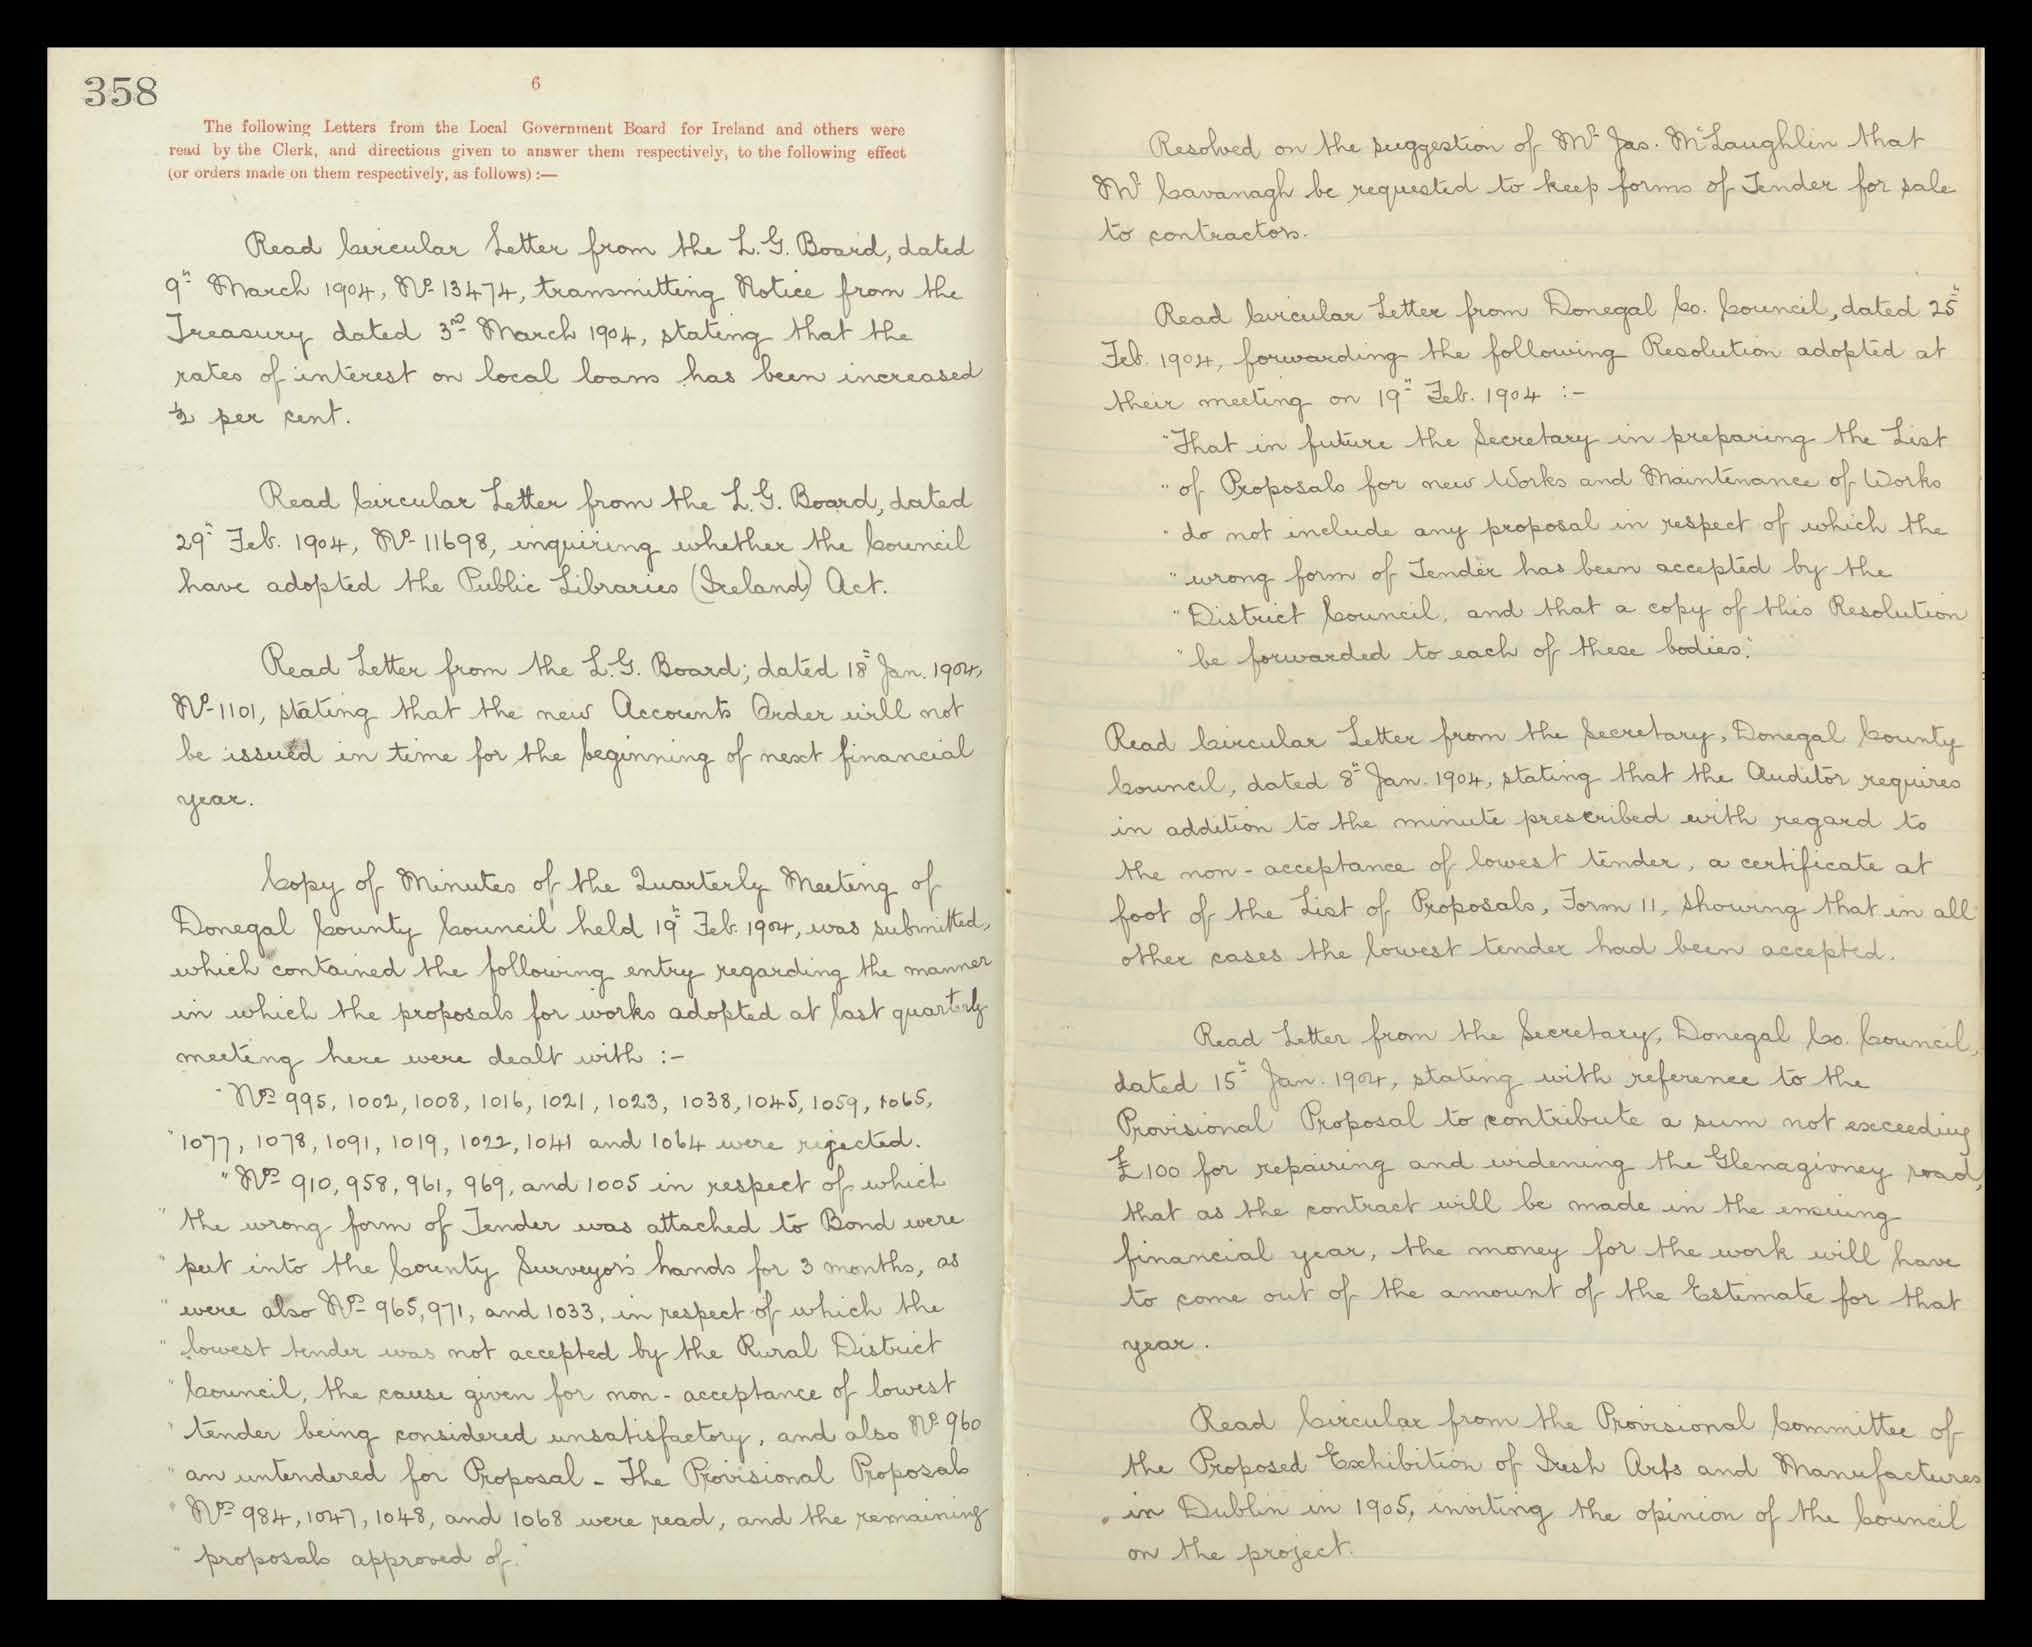 358
6
The following Letters from the Local Government Board for Ireland and others were
read by the Clerk, and directions given to answer them respectively, to the following effect
(or orders made on them respectively, as follows) :—
Read Circular Letter from the L.G. Board, dated
9th March 1904, No 13474, transmitting Notice from the
Treasury dated 3rd March 1904, stating that the
rates of interest on local loans has been increased
½ per cent.
Read Circular Letter from the L.G. Board, dated
29th Feb. 1904, No 11698, inquiring whether the Council
have adopted the Public Libraries (Ireland) Act.
Read Letter from the L.G. Board; dated 18th Jan. 1904,
No 1101, stating that the new Accounts Order will not
be issued in time for the beginning of next financial
year.
Copy of Minutes of the Quarterly Meeting of
Donegal County Council held 19th Feb. 1904, was submitted,
which contained the following entry regarding the manner
in which the proposals for works adopted at last quarterly
meeting here were dealt with :-
"Nos 995, 1002, 1008, 1016, 1021, 1023, 1038, 1045, 1059, 1065,
"1077, 1078, 1091, 1019, 1022, 1041 and 1064 were rejected.
"Nos 910, 958, 961, 969, and 1005 in respect of which
"the wrong form of Tender was attached to Bond were
"put into the County Surveyor's hands for 3 months, as
"were also Nos 965, 971, and 1033, in respect of which the
"lowest tender was not accepted by the Rural District
"Council, the cause given for non-acceptance of lowest
"tender being considered unsatisfactory, and also No 960
"an untendered for Proposal - The Provisional Proposals
"Nos 984, 1047, 1048, and 1068 were read, and the remaining
"proposals approved of."
Resolved on the suggestion of Mr Jas. McLaughlin that
Mr Cavanagh be requested to keep forms of Tender for sale
to contractors.
Read Circular Letter from Donegal Co. Council, dated 25th
Feb. 1904, forwarding the following Resolution adopted at
their meeting on 19th Feb. 1904 :-
"That in future the Secretary in preparing the List
"of Proposals for new Works and Maintenance of Works
"do not include any proposal in respect of which the
"wrong form of Tender has been accepted by the
"District Council, and that a copy of this Resolution
"be forwarded to each of these bodies."
Read Circular Letter from the Secretary, Donegal County
Council, dated 8th Jan. 1904, stating that the Auditor requires
in addition to the minute prescribed with regard to
the non-acceptance of lowest tender, a certificate at
foot of the List of Proposals, Form 11, showing that in all
other cases the lowest tender had been accepted.
Read Letter from the Secretary, Donegal Co. Council,
dated 15th Jan. 1904, stating with reference to the
Provisional Proposal to contribute a sum not exceeding
£100 for repairing and widening the Glenagivney road,
that as the contract will be made in the ensuing
financial year, the money for the work will have
to come out of the amount of the Estimate for that
year.
Read Circular from the Provisional Committee of
the Proposed Exhibition of Irish Arts and Manufactures
in Dublin in 1905, inviting the opinion of the Council
on the project.